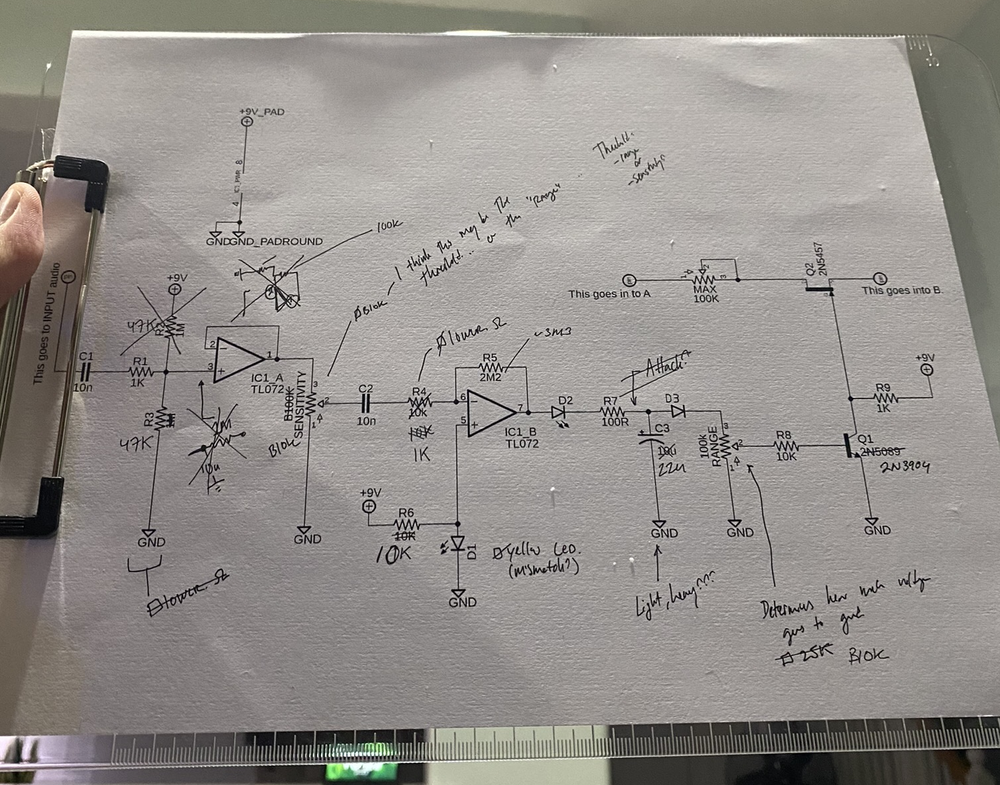 +9V_PAD
8
4
GND
GND_PADROUND
100K
I think this may be the
threshold... or the "Range"
- range
or
- sensitivity?
This goes to INPUT audio
+9V
47K
1M
C1
10n
R1
1K
R3
47K
GND
2
3
1
IC1_A
TL072
B100K
SENSITIVITY
B10K
3
2
1
GND
B10K
C2
10n
lower Ω
R4
10k
1K
R5
2M2
~3M3
6
5
7
IC1_B
TL072
+9V
R6
10K
10K
D1
GND
yellow LED.
(mismatch?)
D2
R7
100R
Attack?
C3
10u
22u
GND
Light, heavy???
D3
100K
RANGE
3
2
1
GND
R8
10K
Q1
2N5089
2N3904
GND
R9
1K
+9V
This goes in to A
MAX
100K
1
3
Q2
2N5457
This goes into B.
10u
lower Ω
Determines how much voltage
goes to gnd
25K B10K